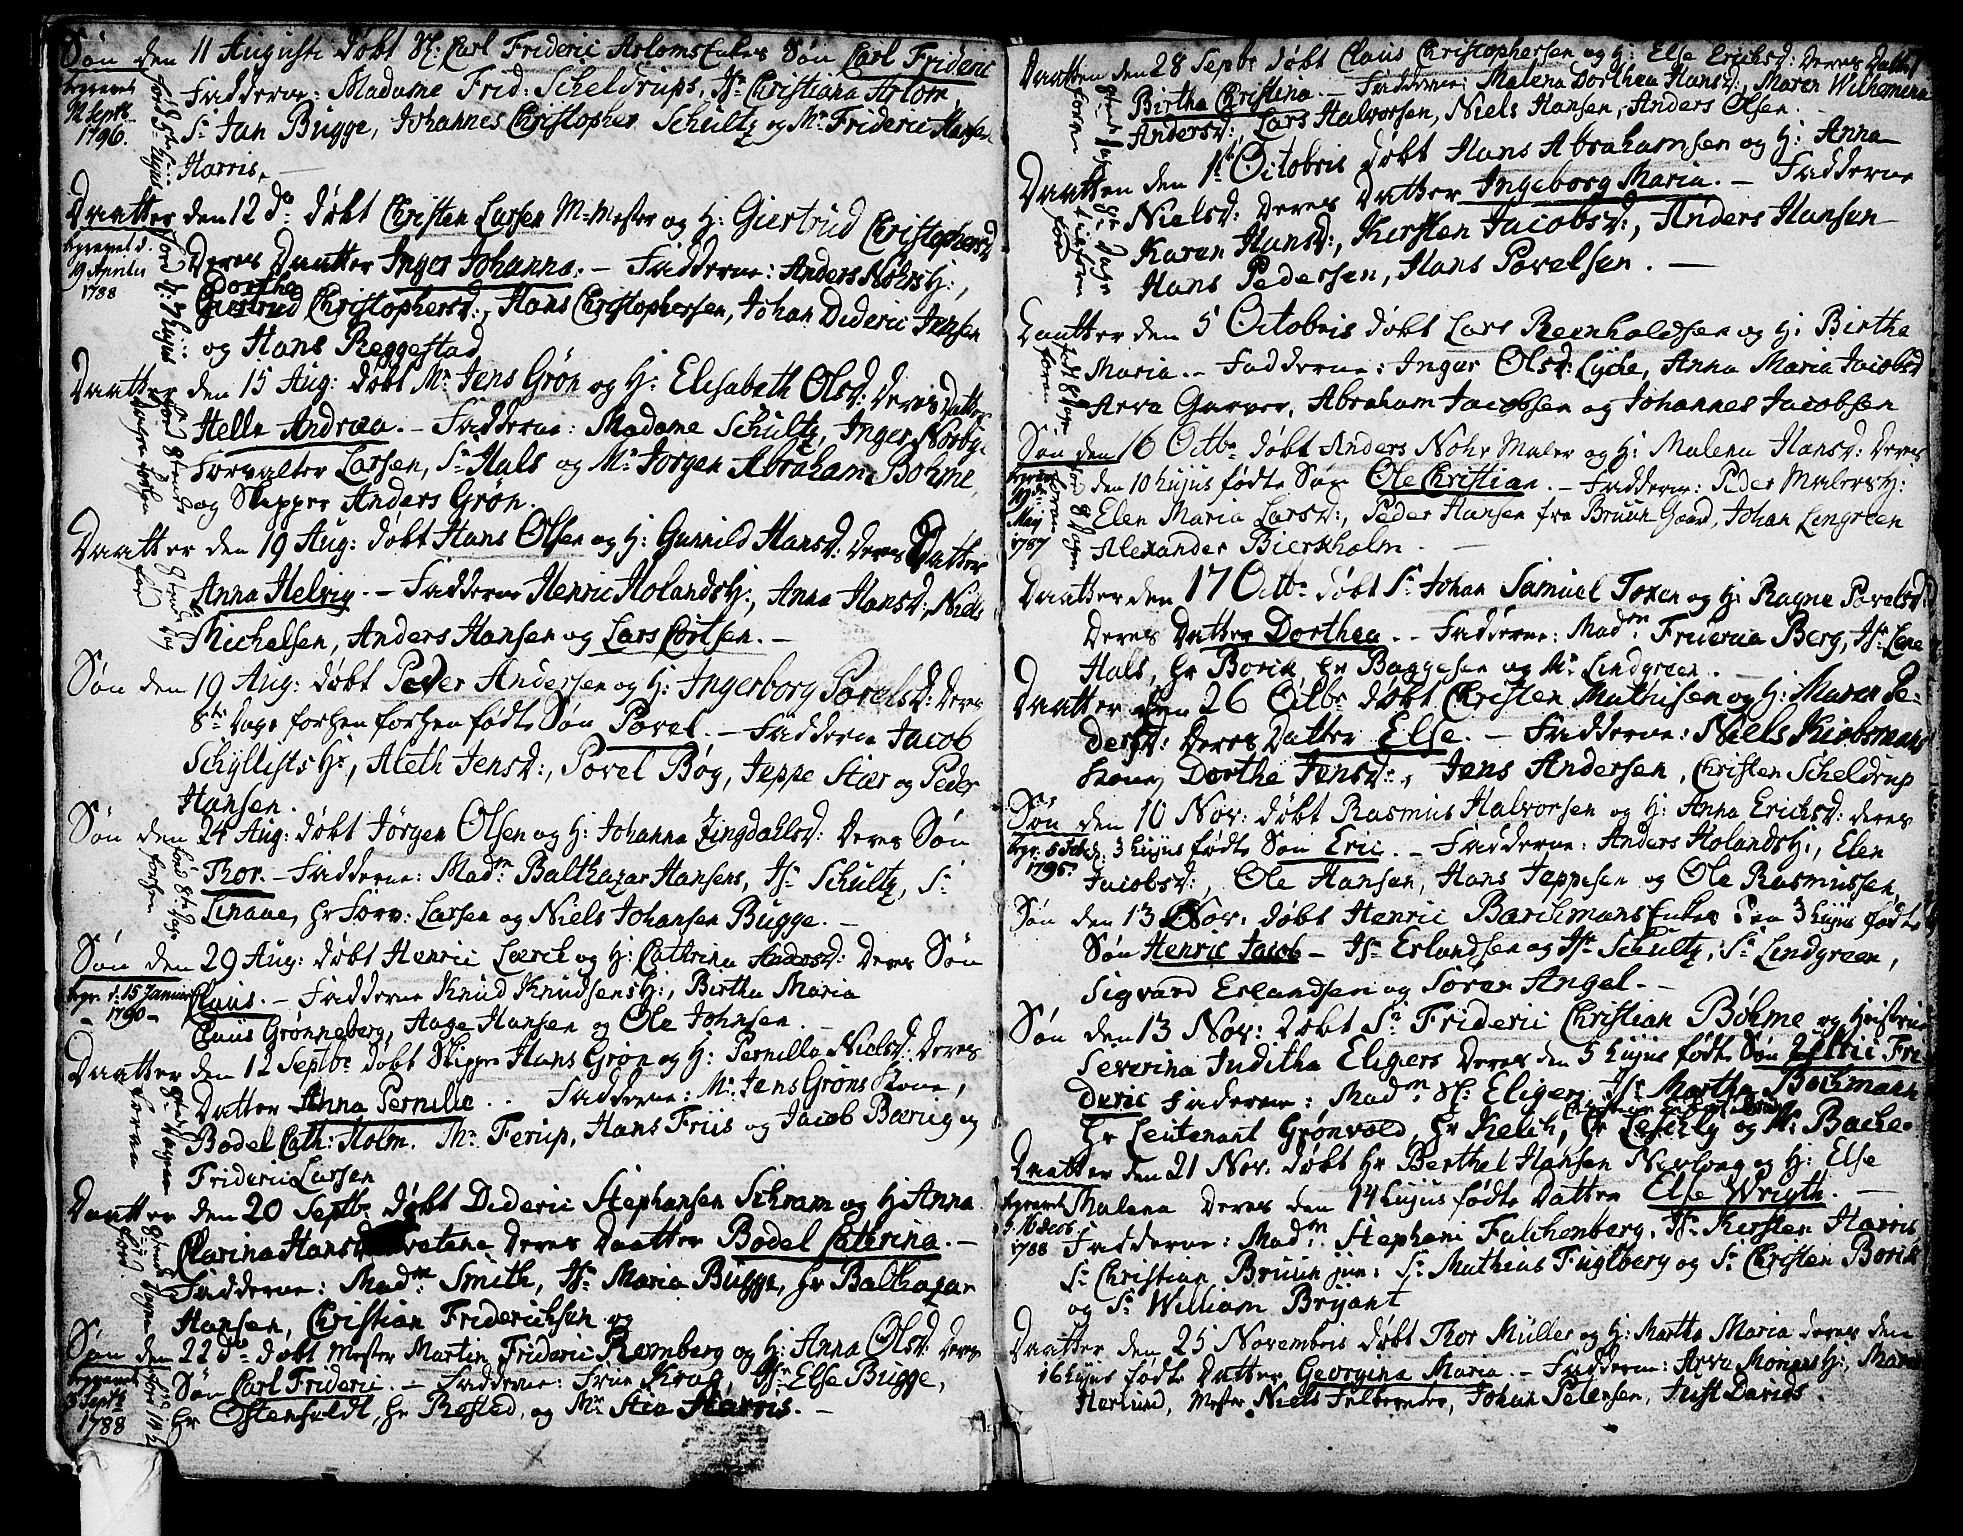 Søn den 11 Augusti døbt Sl: Carl Frideric Arloms Enkes Søn Carl Frideric
begravet
1796.
Fadderne: Madame Frid: Scheldrups, Jfr Christiana Arlom,
Sr Jan Bugge, Johannes Christopher Schultz og Mr Frideric Hansen
Harris. —
Daatter den 12 do døbt Christen Larsen M-Mester og H: Giertrud Christophersd
begravet d.
19 Aprilis
1788
Deres Daatter Inger Johanna. — Fadderne: Anders Nohrs H:,
Dorthea
Giertrud Christophersd:, Hans Christophersen, Johan Dideric Jensen
og Hans Reggestad
Daatter den 15 Aug: døbt Mr Jens Grøn og H: Elisabeth Olsd: Deres Datter
Helle Andrea. — Fadderne: Madame Schultz, Inger Norbye
Forvalter Larsen, Sr Hals og Mr Jørgen Abraham Bohme,
og Skipper Anders Grøn.
Daatter den 19 Aug: døbt Hans Olsen og H: Gunnild Hansd: Deres Datter
Anna Helvig. — Fadderne Henric Holands H:, Anna Hansd:, Niels
Michelsen, Anders Hansen og Lars Cortsen. —
Søn den 19 Aug: døbt Peder Andersen og H: Ingerborg Povelsd: Deres
8te Dage forhen forhen fødte Søn Povel. — Fadderne Jacob
Schyllists Hr, Aleth Jensd:, Povel Bøy, Jeppe Stiær og Peder
Hansen.
Søn den 24 Aug: døbt Jørgen Olsen og H: Johanna Lingdahlsd: Deres Søn
Thor. — Fadderne: Madm Balthazar Hansens, Jfr Schultz, Sr
Linaae, Hr Forv: Larsen og Niels Johansen Bugge. —
Søn den 29 Aug: døbt Henric Lærck og H: Cathrina Andersd: Deres Søn
begr. d: 15 Januari
1790
Claus. — Fadderne Knud Knudsens H:, Birtha Maria
Claus Grønneberg, Aage Hansen og Ole Johnsen.
Daatter den 12 Septbr døbt Skipper Hans Grøn og H: Pernilla Nielsd: Deres
Datter Anna Pernille. Fadderne: Mr Jens Grøns Kone,
Bodel Cath: Holm. Mr Ferup, Hans Friis og Jacob Barig og
Frideric Larsen
Daatter den 20 Septbr døbt Dideric Stephansen Schram og H: Anna
Clarina Hansd Deres Daatter Bodel Caterina. —
Fadderne: Madm Smith, Jfr Maria Bugge, Hr Balthazar
Hansen, Christian Fridericksen og
Søn den 22 do døbt Mester Martin Frideric Remberg og H: Anna Olsd: Deres
begravet
Septb
1788
Søn Carl Frideric. — Fadderne: Frue Krag, Jfr Else Bugge,
Hr Ostenfeldt, Hr Rosted, og Mr Stia Harris. —
Daatter den 28 Septbr døbt Claus Christophersen og H: Else Ericksd: Deres Datter
Birtha Christina. — Fadderne: Malena Dorthea Hansd:, Maren Wilhemina
Andersd:, Lars Halvorsen, Niels Hansen, Anders Olsen.
Daatter den 1te Octobris døbt Hans Abrahamsen og H: Anna
Nielsd: Deres Datter Ingeborg Maria. — Fadderne
Karen Hansd:, Kersten Jacobsd:, Anders Hansen
Hans Pedersen, Hans Povelsen. —
Daatter den 5 Octobris døbt Lars Reinholdsen og H: Birthe
Maria. — Fadderne: Inger Olsd: Lyche, Anna Maria Jacobsd
Arve Garver, Abraham Jacobsen og Johannes Jacobsen
Søn den 16 Octbr døbt Anders Nohr Maler og H: Malena Hansd: Deres
begravet
19de
May
1787
den 10 hujus fødte Søn Ole Christian. — Fadderne: Peder Malers H:
Elen Maria Larsd:, Peder Hansen fra Bruun Gaard, Johan Lengreen
Alexander Bierkholm. —
Daatter den 17 Octbr døbt Sr Johan Samuel Toxen og H: Ragne Povelsd:
Deres Datter Dorthea. — Fadderne: Madm Friderica Berg, Jfr Lene
Hals, Hr Borik, Hr Baggesen og Mr Lindgreen. —
Daatter den 26 Octbr døbt Christen Mathisen og H: Maren Pe-
dersd: Deres Datter Else. — Fadderne: Niels Kiøbmans
Kone, Dorthe Jensd:, Jens Andersen, Christen Scheldrup
Søn den 10 Nov: døbt Rasmus Halvorsen og H: Anna Ericksd: deres
begr: 5 Febr
1795
d: 3 hujus fødte Søn Eric. — Fadderne: Anders Holands H:, Elen
Jacobsd:, Ole Hansen, Hans Jeppesen og Ole Rasmussen
Søn den 13 Nov: døbt Henric Barchmans Enkes den 3 hujus fødte
Søn Henric Jacob — Jfr Erlundsen og Jfr Schultz, Sr Lindgreen,
Sigvard Erlandsen og Søren Angel. —
Søn den 13 Nov: døbt Sr Frideric Christian Bøhme og Hustrue
Severina Juditha Eligers Deres den 5 hujus fødte Søn Ulric Fri-
deric Fadderne: Madm Sl: Eliger, Jfr Martha Bachmann
Hr Leutenant Grønvold, Hr Kelch, Hr Leferly og Mr Bache.
Daatter den 21 Nov. døbt Hr Berthel Hansen Nerlong og H: Else
begravet
1788
Malena Deres den 14 hujus fødte Datter Else Wrigth. —
Fadderne: Madm Stephani Falchenberg, Jfr Kersten Harris
Sr Christian Bruun jun: Sr Mathias Fuglberg og Sr Christen Borik
og Sr William Bryant
Daatter den 25 Novembris døbt Thor Müller og H: Martha Maria deres den
16 hujus fødte Datter Georgina Maria. — Fadderne: Arve Moriges H:, Maren
Herlund, Mester Niels Felbereder, Johan Petersen, Just Davids.